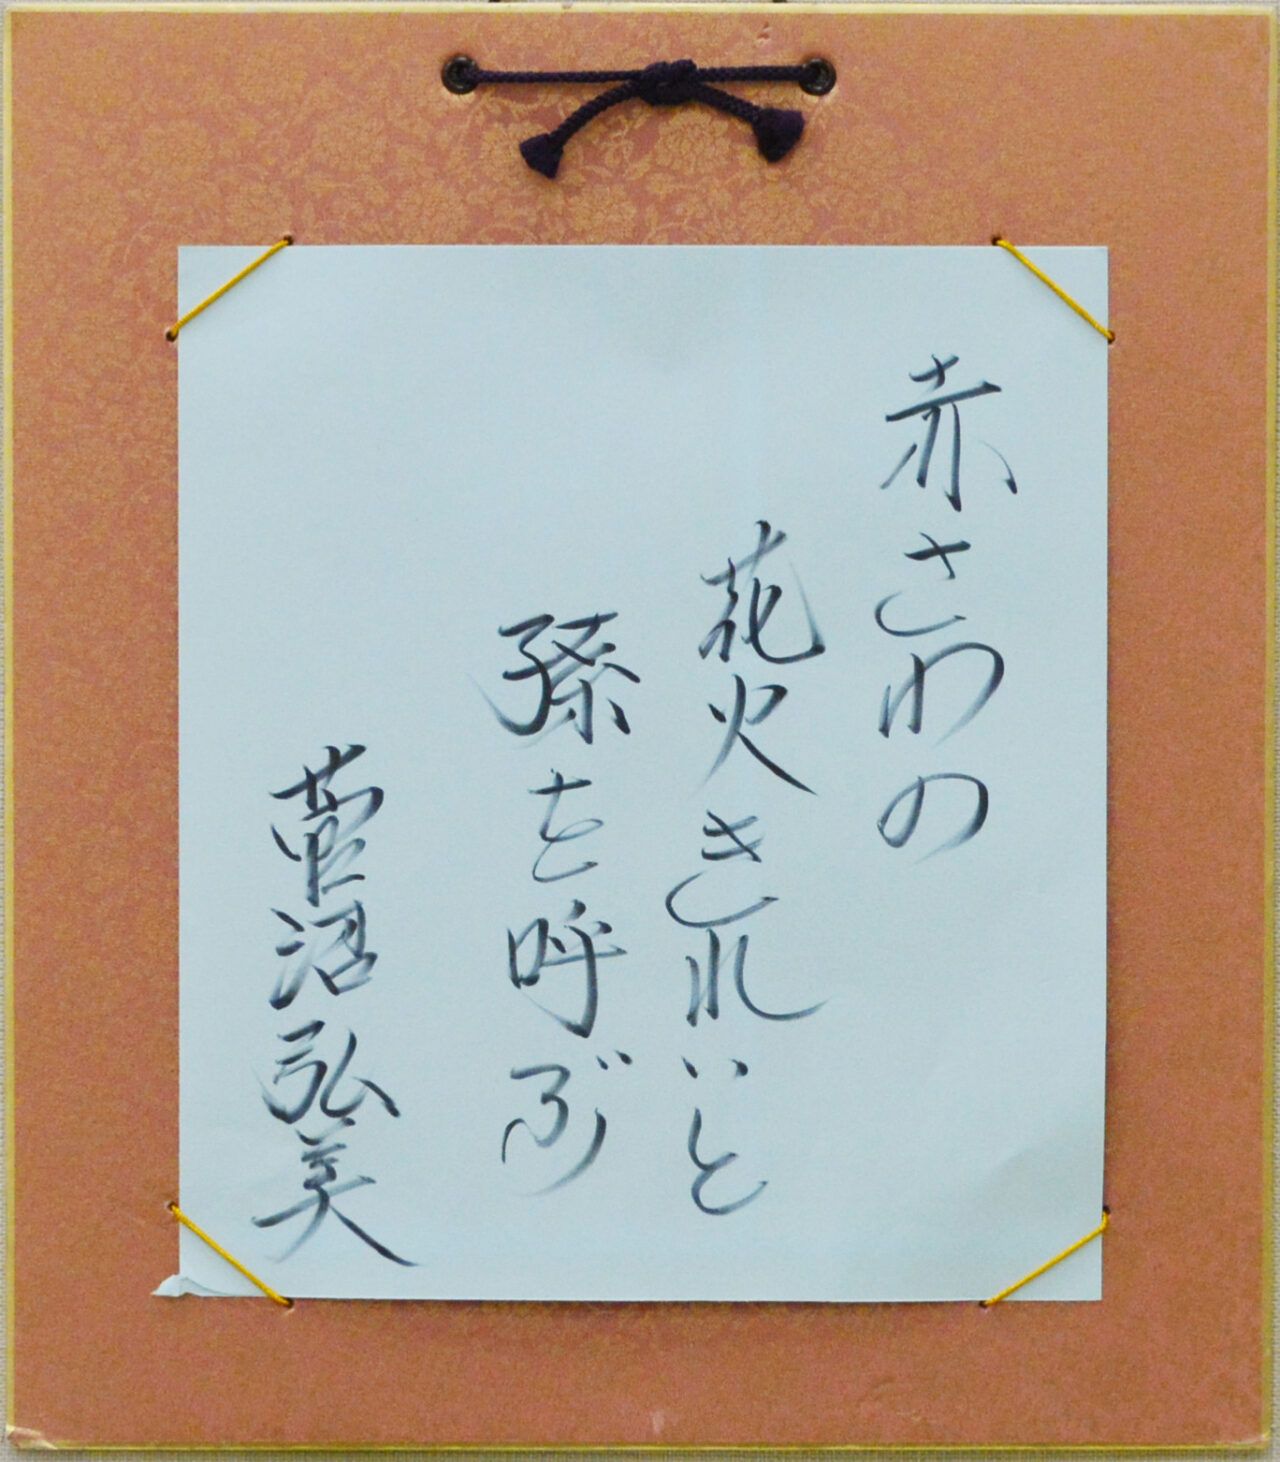 赤さわの
花火きれいと
孫を呼ぶ
菅沼弘美